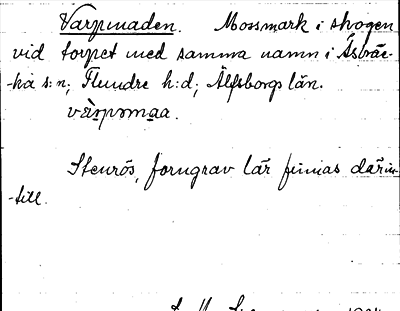 Varpmaden. Mossmark i skogen
vid torpet med samma namn i Åsbräc-
-ka s:n; Flundre h:d; Älfsborgs län.
vàrpmaa.
Stenrös, forngrav lär finnas därin-
-till.